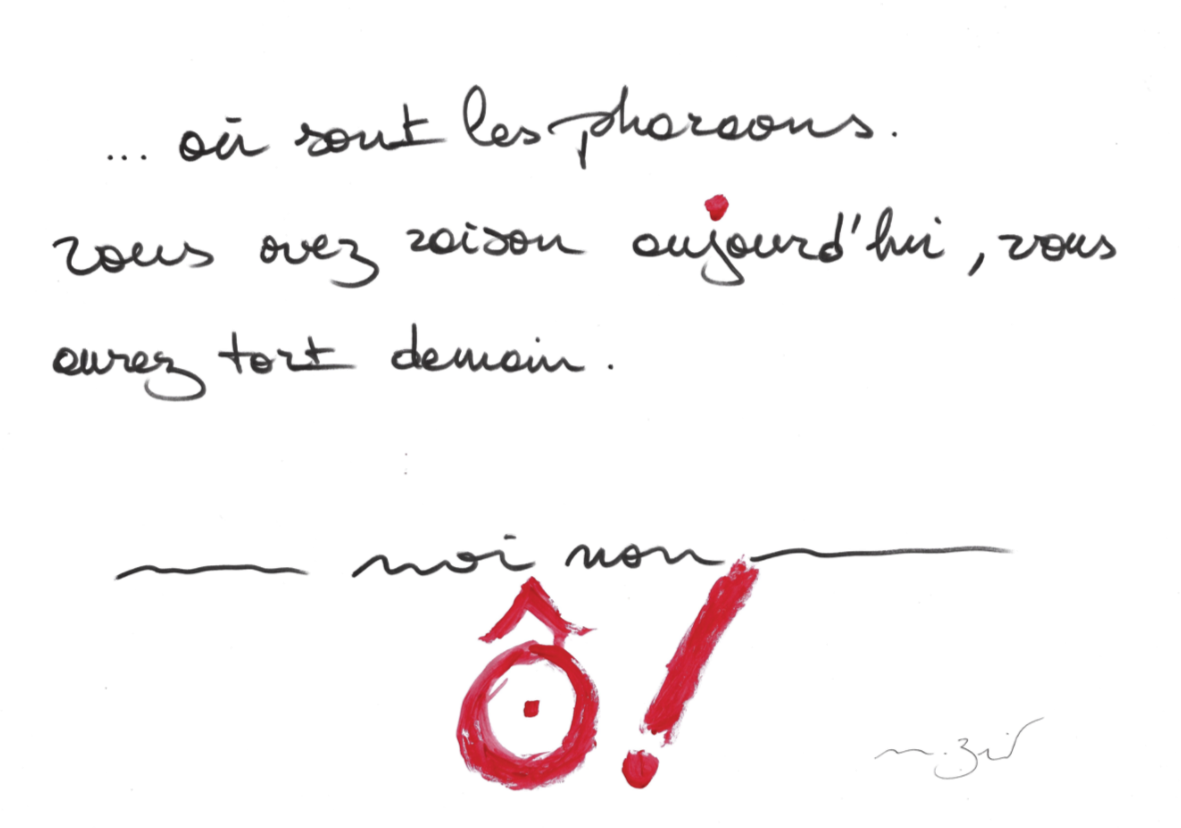 ... où sont les pharaons.
vous avez raison aujourd'hui, vous
aurez tort demain.
moi non
Ô!